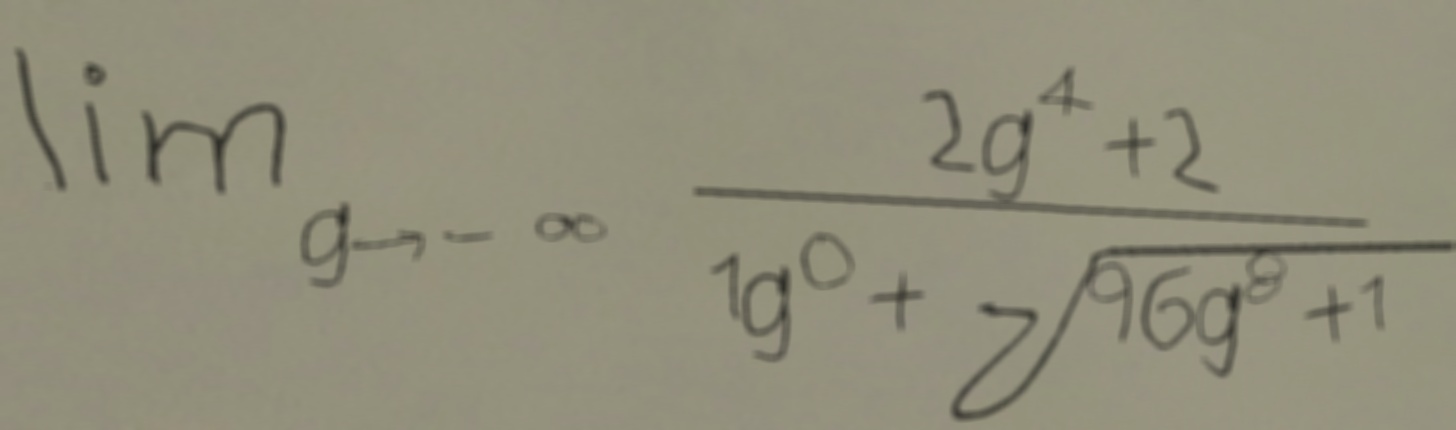 \lim_{g \to -\infty} \frac{2g^4+2}{1g^0+\sqrt{96g^8+1}}